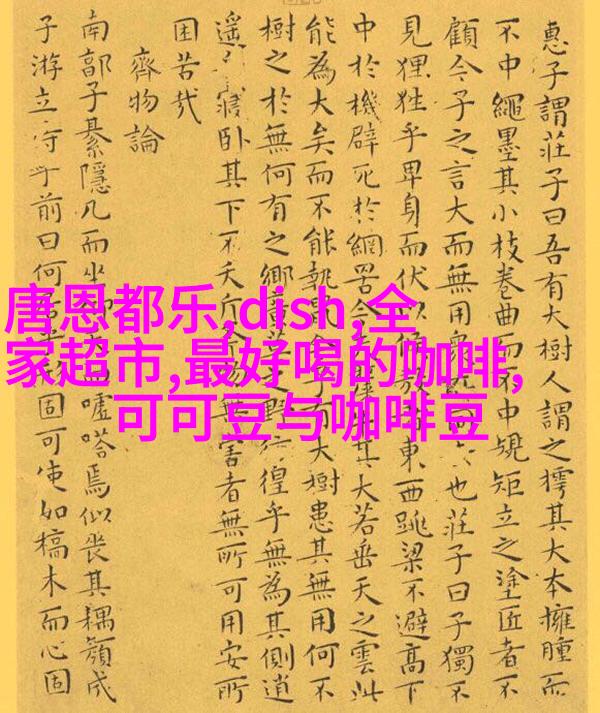 惠子謂莊子曰吾有大樹人謂之樗其大本擁腫而
不中繩墨其小枝卷曲而不中規矩立之塗匠者不
顧今子之言大而無用衆 也莊子曰子獨不
見狸狌乎卑身而伏以 東西跳梁不避高下
中於機辟死於網罟今 其大若垂天之雲此
能為大矣而不能執鼠今子有大樹患其無用何不
樹之於無何有之鄉廣 之野彷徨乎無為其側逍
遙 寢卧其下不夭斤 物無害者無所可用安所
困苦哉
齊物論
南郭子綦隱几而坐仰 嘘嗒焉似喪其耦顏成
子游立侍乎前曰何 固可使如槁木而心固
唐恩都乐,dish,全
家超市,最好喝的咖啡,
可可豆与咖啡豆